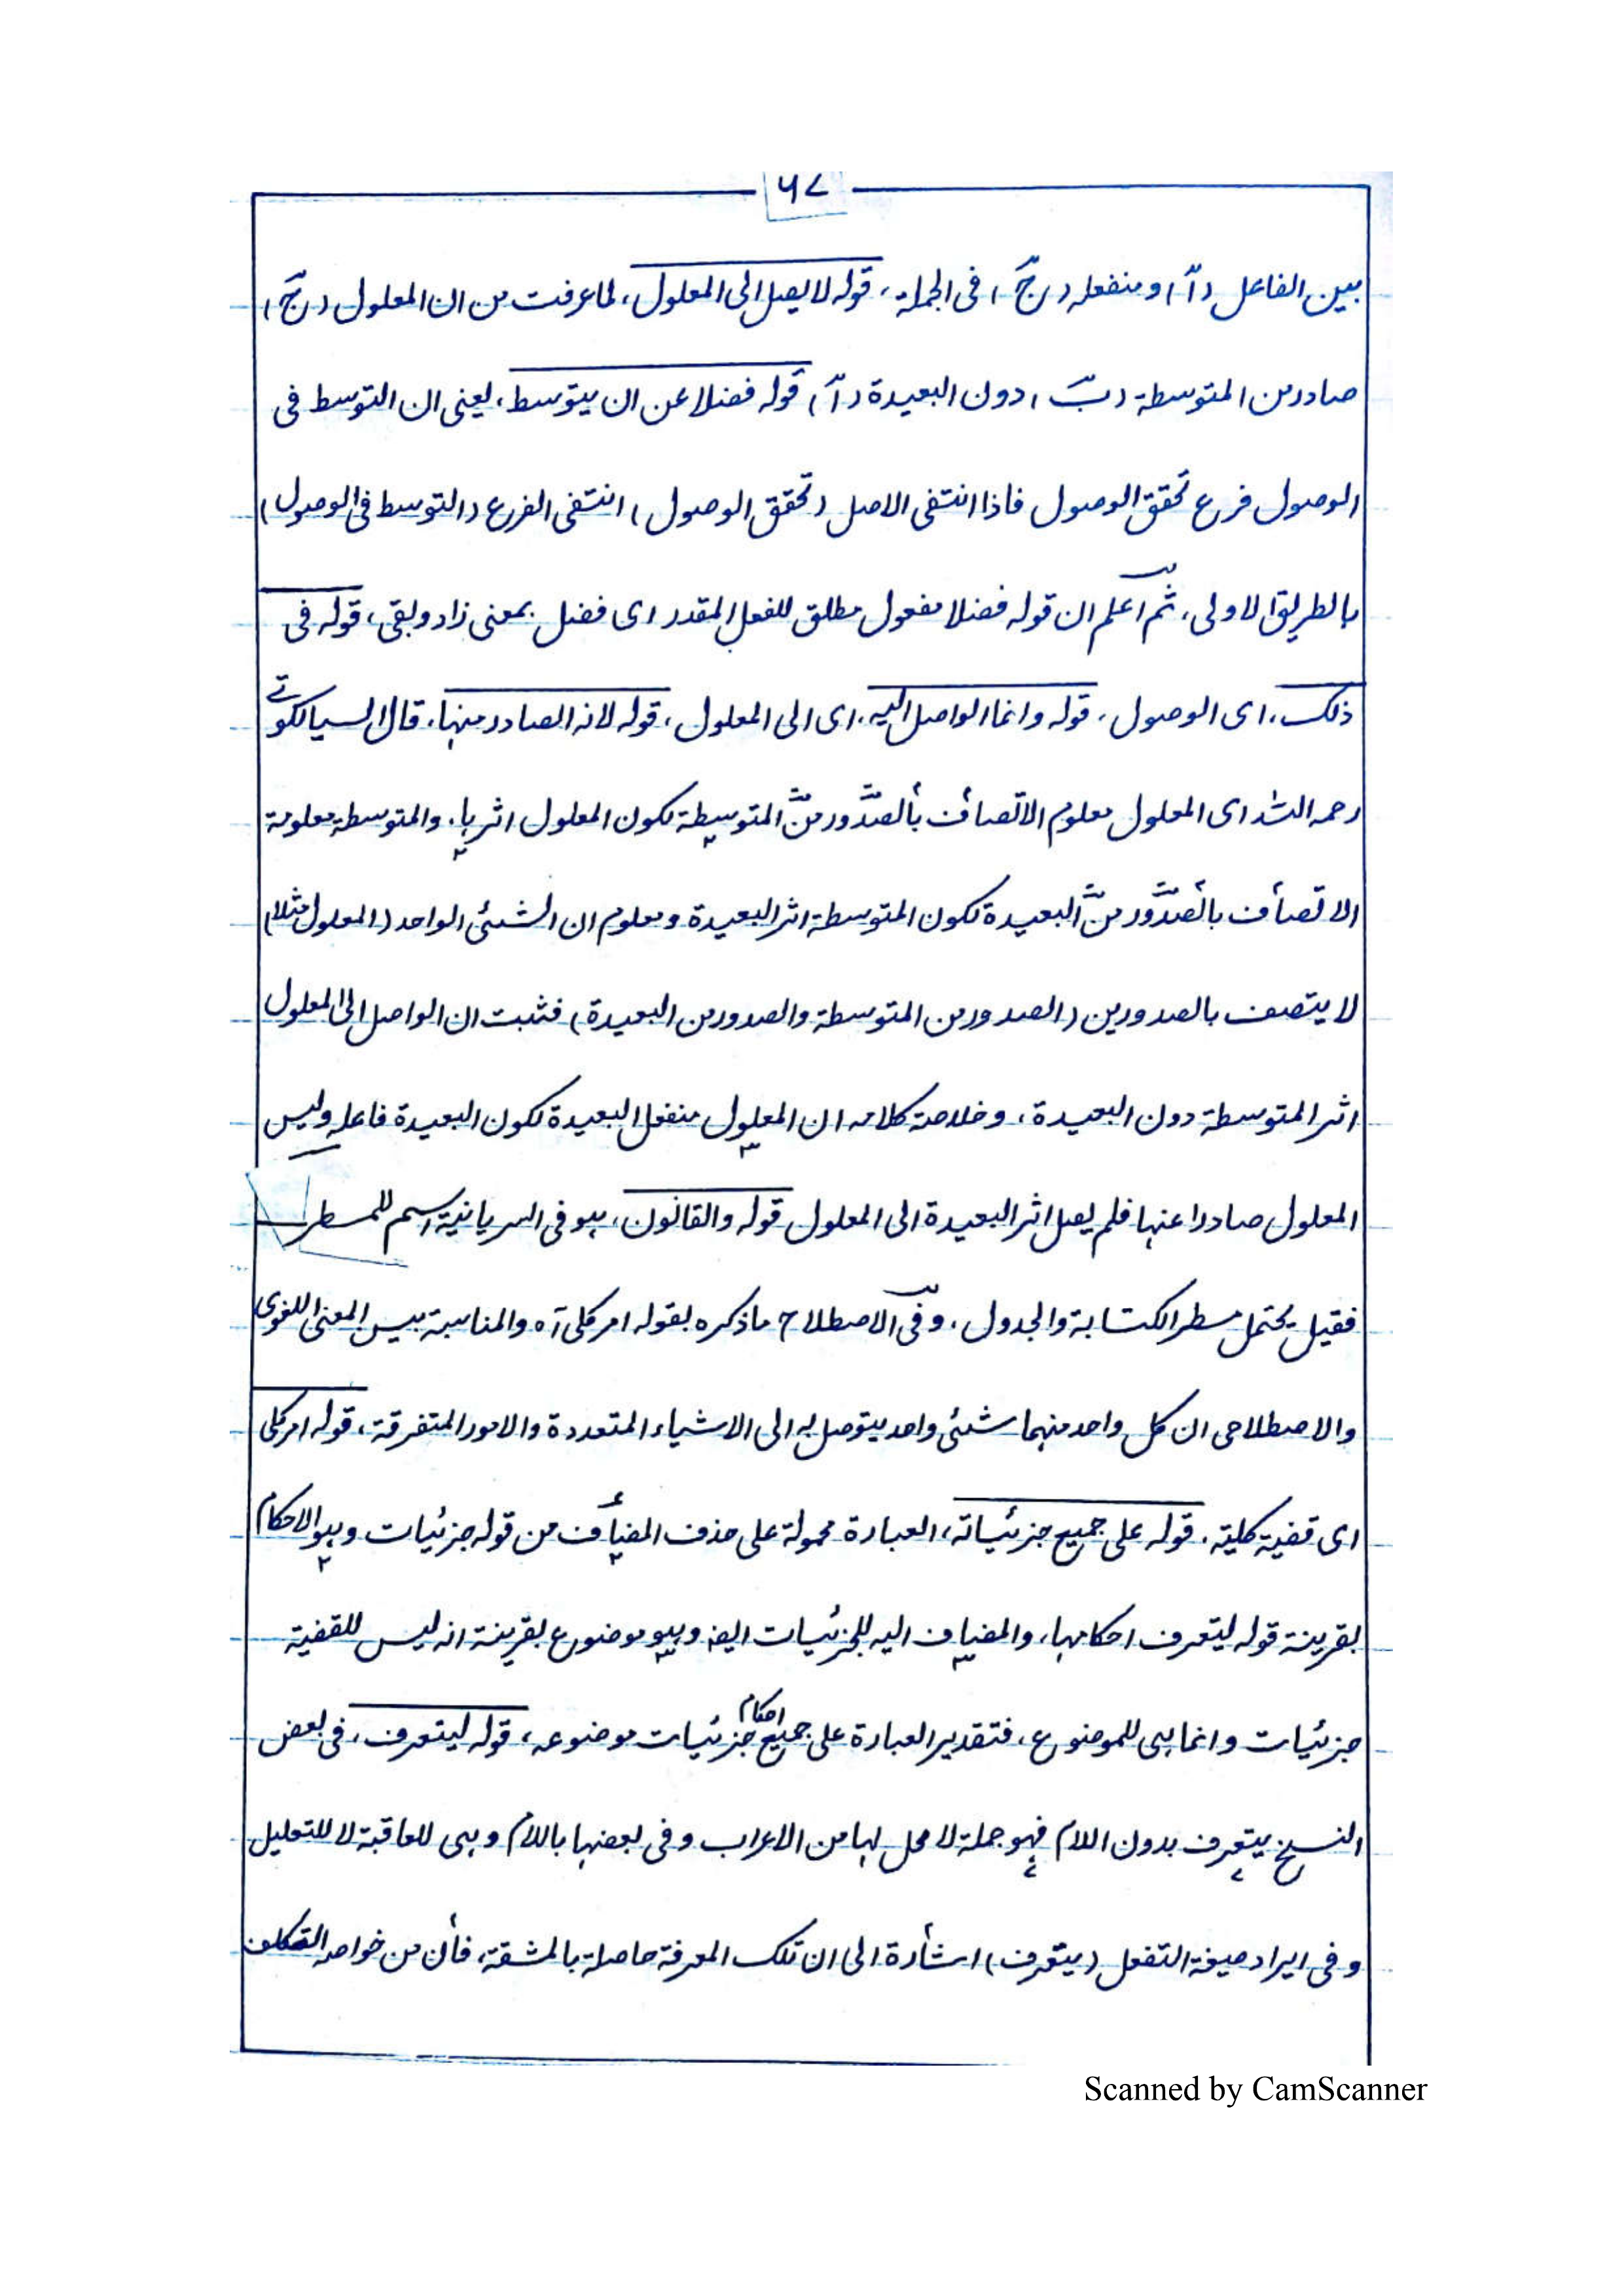 ٦٧
بين الفاعل (آ) ومنفعله (جَ) فى الجملة، قوله لا يصل الى المعلول، لما عرفت من ان المعلول (جَ)
صادر من المتوسطة (بَ) دون البعيدة (آ) قوله فضلا عن ان يتوسط، يعنى ان التوسط فى
الوصول فرع تحقق الوصول فاذا انتفى الاصل (تحقق الوصول) انتفى الفرع (التوسط فى الوصول)
بالطريق الاولى، ثم اعلم ان قوله فضلا مفعول مطلق للفعل المقدر اى فضل بمعنى زاد وبقى، قوله فى
ذلك، اى الوصول، قوله وانما الواصل اليه، اى الى المعلول، قوله لانه الصادر منها، قال السيالكوتے
رحمه الله اى المعلول معلوم الاتصاف بالصدور من المتوسطة لكون المعلول اثرها، والمتوسطة معلومة
الاتصاف بالصدور من البعيدة لكون المتوسطة اثر البعيدة ومعلوم ان الشئى الواحد (المعلول مثلا)
لا يتصف بالصدورين (الصدور من المتوسطة والصدور من البعيدة) فثبت ان الواصل الى المعلول
اثر المتوسطة دون البعيدة، وخلاصة كلامه ان المعلول منفعل البعيدة لكون البعيدة فاعله وليس
المعلول صادرا عنها فلم يصل اثر البعيدة الى المعلول قوله والقانون، هو فى السريانية اسم للمسطر
فقيل يحتمل مسطر الكتابة والجدول، وفى الاصطلاح ماذكره بقوله امر كلى آه والمناسبة بين المعنى اللغوى
والاصطلاحى ان كل واحد منهما شئى واحد يتوصل به الى الاشياء المتعددة والامور المتفرقة، قوله امر كلى
اى قضية كلية، قوله على جميع جزئياته، العبارة محمولة على حذف المضاف من قوله جزئيات وهو الاحكام
بقرينة قوله ليتعرف احكامها، والمضاف اليه للجزئيات ايضا وهو موضوع بقرينة انه ليس للقضية
جزئيات وانما هى للموضوع، فتقدير العبارة على جميع احكام جزئيات موضوعه، قوله ليتعرف، فى بعض
النسخ يتعرف بدون اللام فهو جملة لا محل لها من الاعراب وفى بعضها باللام وهى للعاقبة لا للتعليل
وفى ايراد صيغة التفعل (يتعرف) اشارة الى ان تلك المعرفة حاصلة بالمشقة، فان من خواصه التكلف
Scanned by CamScanner